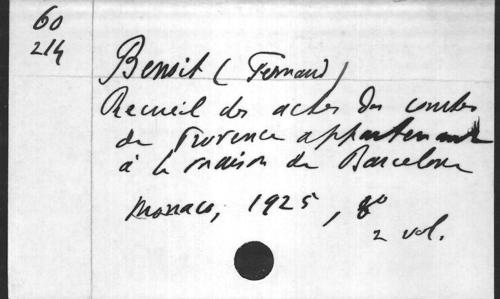 60
214
Benoit (Fernand)
Recueil des actes des comtes
de Provence appartenant
à la maison de Barcelone
Monaco, 1925, 8°
2 vol.